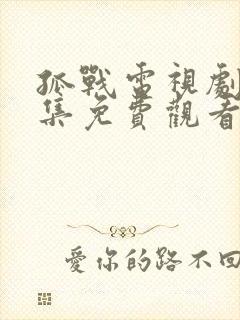 孤戰電視劇
集免費觀看
愛你的路不回